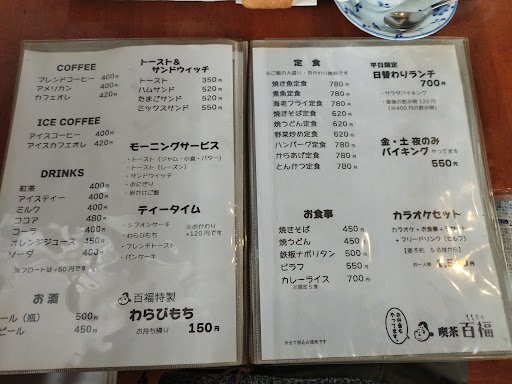 COFFEE
ブレンドコーヒー 400円
アメリカン 400円
カフェオレ 420円
ICE COFFEE
アイスコーヒー 400円
アイスカフェオレ 420円
DRINKS
紅茶 400円
アイスティー 400円
ミルク 400円
ココア 480円
コーラ 400円
オレンジジュース 450円
ソーダ 400円
※フロートは+50円です
お酒
ール(瓶) 500円
ビール 450円
トースト&
サンドウィッチ
トースト 350円
ハムサンド 520円
たまごサンド 520円
ミックスサンド 550円
モーニングサービス
・トースト(ジャム・小倉・バター)
・トースト(レーズン)
・サンドウィッチ
・おにぎり
・卵かけご飯
ティータイム
・シフォンケーキ
・わらびもち
・フレンチトースト
・パンケーキ
※おかわり
+120円です
百福特製
わらびもち
お持ち帰り 150円
定食
※ご飯の大盛り・おかわり無料です
焼き魚定食 780円
煮魚定食 780円
海老フライ定食 780円
焼きそば定食 620円
焼うどん定食 620円
野菜炒め定食 620円
ハンバーグ定食 780円
からあげ定食 780円
とんかつ定食 780円
お食事
焼きそば 450円
焼うどん 450円
鉄板ナポリタン 500円
ピラフ 550円
カレーライス 700円
※限定5食
※全て税込み価格です
平日限定
日替わりランチ
700円
・サラダバイキング
・食後の飲み物120円
(※400円の飲み物)
金・土 夜のみ
バイキング やってます
550円
カラオケセット
カラオケ+お食事+
+フリードリンク(セルフ)
【要予約 5名様から】
お一人様
お弁当も
やってます。
喫茶 百福